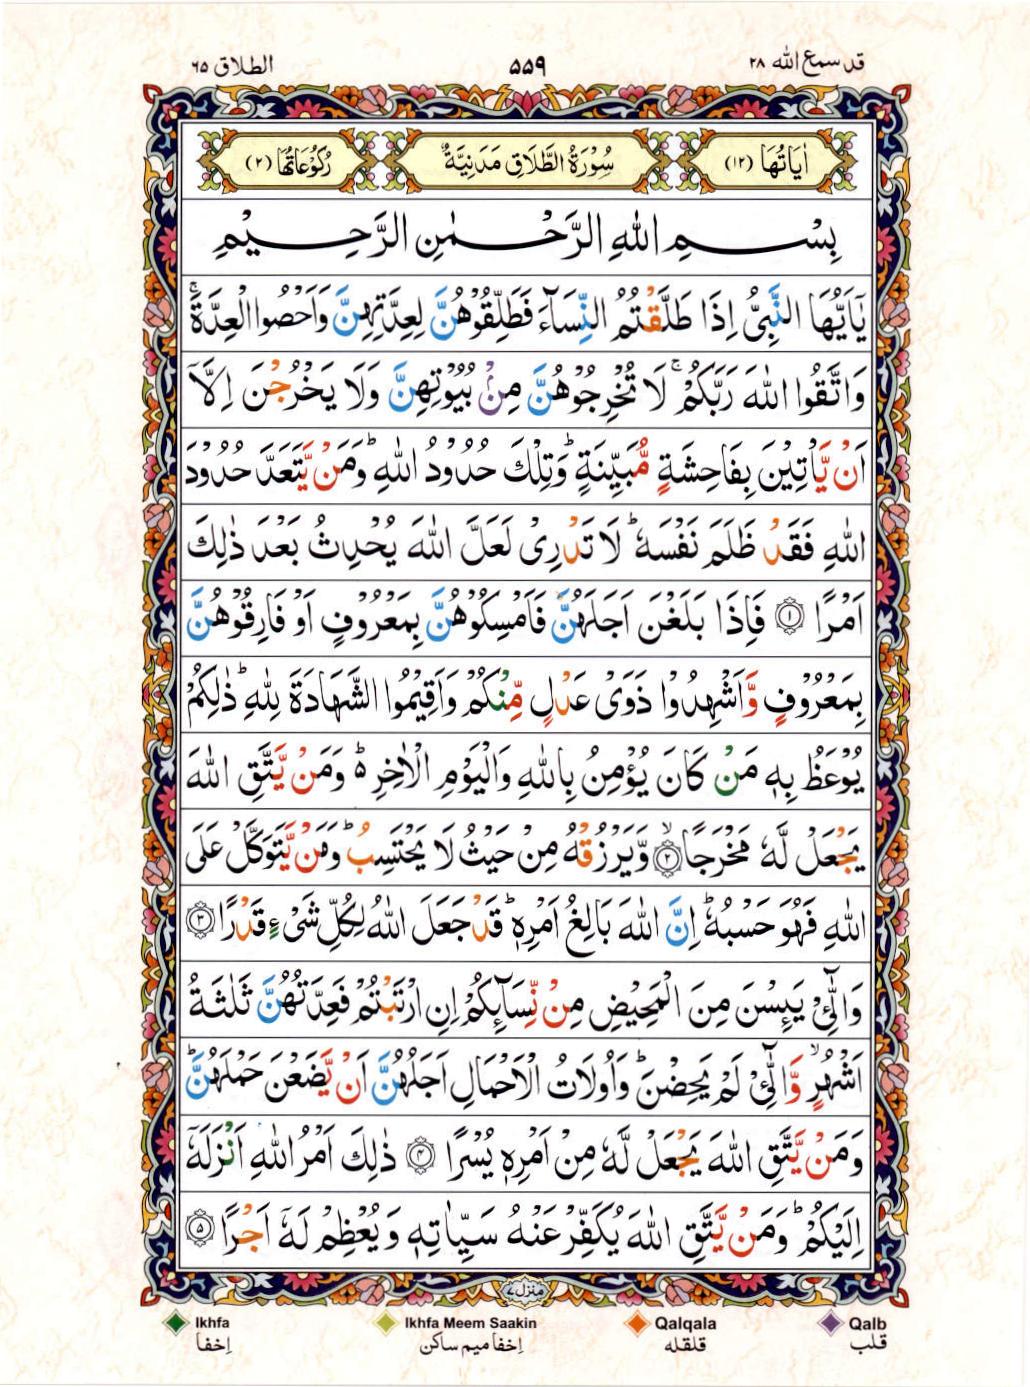 قد سمع الله ۲۸
۵۵۹
الطلاق ۶۵
اٰيَاتُهَا (۱۲)
سُوْرَةُ الطَّلَاقِ مَدَنِيَّةٌ
رُكُوْعَاتُهَا (۲)
بِسْمِ اللّٰهِ الرَّحْمٰنِ الرَّحِيْمِ
يٰۤاَيُّهَا النَّبِىُّ اِذَا طَلَّقْتُمُ النِّسَآءَ فَطَلِّقُوْهُنَّ لِعِدَّتِهِنَّ وَاَحْصُوا الْعِدَّةَ ۚ
وَاتَّقُوا اللّٰهَ رَبَّكُمْ ۚ لَا تُخْرِجُوْهُنَّ مِنْۢ بُيُوْتِهِنَّ وَلَا يَخْرُجْنَ اِلَّاۤ
اَنْ يَّاْتِيْنَ بِفَاحِشَةٍ مُّبَيِّنَةٍ ؕ وَتِلْكَ حُدُوْدُ اللّٰهِ ؕ وَمَنْ يَّتَعَدَّ حُدُوْدَ
اللّٰهِ فَقَدْ ظَلَمَ نَفْسَهٗ ؕ لَا تَدْرِىْ لَعَلَّ اللّٰهَ يُحْدِثُ بَعْدَ ذٰلِكَ
اَمْرًا ۱ فَاِذَا بَلَغْنَ اَجَلَهُنَّ فَاَمْسِكُوْهُنَّ بِمَعْرُوْفٍ اَوْ فَارِقُوْهُنَّ
بِمَعْرُوْفٍ وَّاَشْهِدُوْا ذَوَىْ عَدْلٍ مِّنْكُمْ وَاَقِيْمُوا الشَّهَادَةَ لِلّٰهِ ؕ ذٰلِكُمْ
يُوْعَظُ بِهٖ مَنْ كَانَ يُؤْمِنُ بِاللّٰهِ وَالْيَوْمِ الْاٰخِرِ ۵ؕ وَمَنْ يَّتَّقِ اللّٰهَ
يَجْعَلْ لَّهٗ مَخْرَجًا ۙ ۲ وَّيَرْزُقْهُ مِنْ حَيْثُ لَا يَحْتَسِبُ ؕ وَمَنْ يَّتَوَكَّلْ عَلَى
اللّٰهِ فَهُوَ حَسْبُهٗ ؕ اِنَّ اللّٰهَ بَالِغُ اَمْرِهٖ ؕ قَدْ جَعَلَ اللّٰهُ لِكُلِّ شَىْءٍ قَدْرًا ۳
وَالّٰٓـئِىْ يَئِسْنَ مِنَ الْمَحِيْضِ مِنْ نِّسَآئِكُمْ اِنِ ارْتَبْتُمْ فَعِدَّتُهُنَّ ثَلٰثَةُ
اَشْهُرٍ ۙ وَّالّٰٓـئِىْ لَمْ يَحِضْنَ ؕ وَاُولَاتُ الْاَحْمَالِ اَجَلُهُنَّ اَنْ يَّضَعْنَ حَمْلَهُنَّ ؕ
وَمَنْ يَّتَّقِ اللّٰهَ يَجْعَلْ لَّهٗ مِنْ اَمْرِهٖ يُسْرًا ۴ ذٰلِكَ اَمْرُ اللّٰهِ اَنْزَلَهٗۤ
اِلَيْكُمْ ؕ وَمَنْ يَّتَّقِ اللّٰهَ يُكَفِّرْ عَنْهُ سَيِّاٰتِهٖ وَيُعْظِمْ لَهٗۤ اَجْرًا ۵
منزل ۷
Ikhfa
Ikhfa Meem Saakin
Qalqala
Qalb
اِخفا
اِخفا میم ساکن
قلقله
قلب